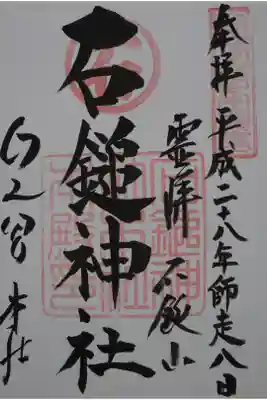 奉拝 平成二十八年師走八日
霊峰 石鎚山
石鎚神社
口之宮 本社